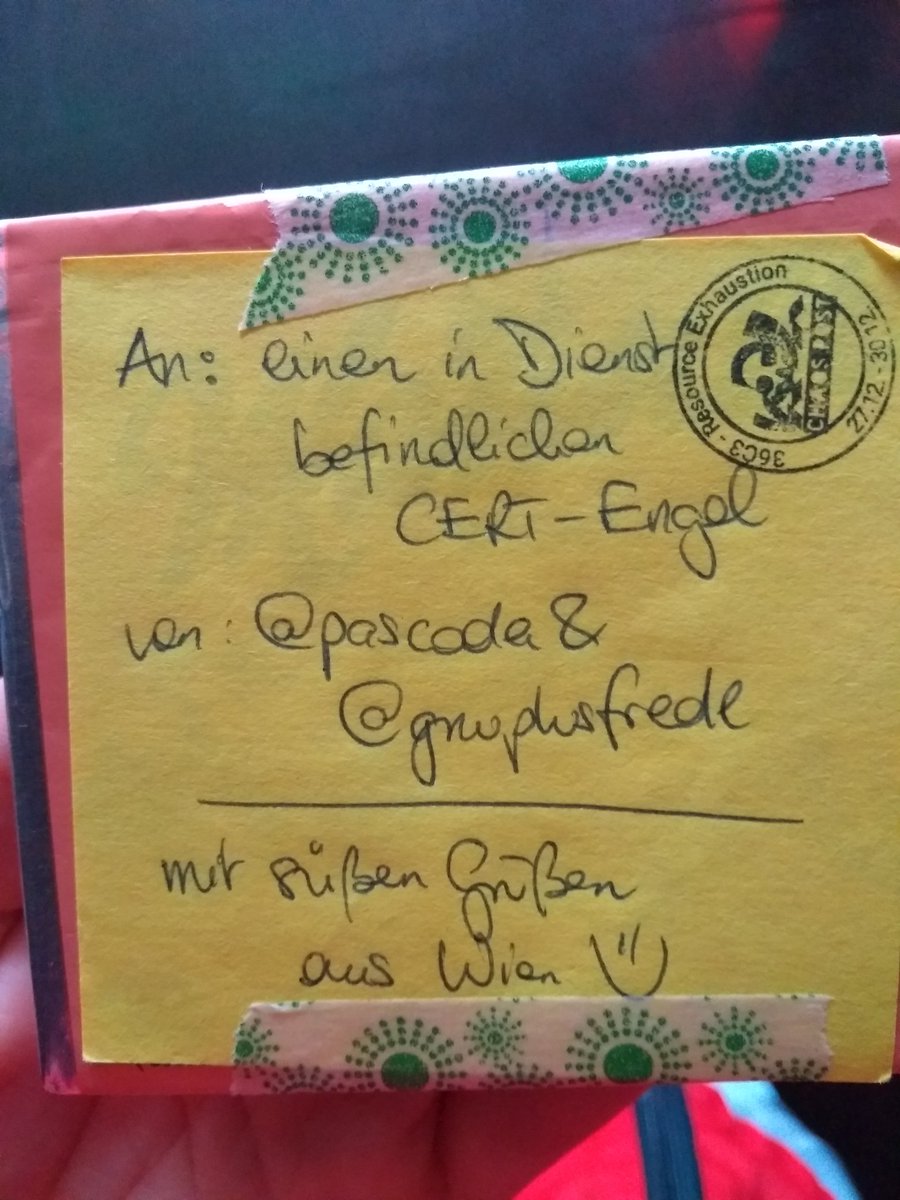 An: einen in Dienst
befindlichen
CERT-Engel
von: @pascoda &
@gnuplusfredl
mit süßen Grüßen
aus Wien
36C3 - Resource Exhaustion
CHAOSPOST
27.12. - 30.12.